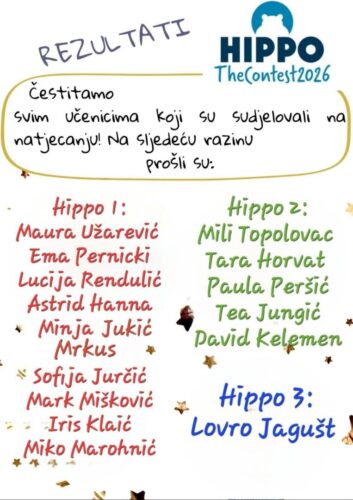 REZULTATI
HIPPO
TheContest2026
Čestitamo
svim učenicima koji su sudjelovali na
natjecanju! Na sljedeću razinu
prošli su:
Hippo 1:
Maura Užarević
Ema Pernicki
Lucija Rendulić
Astrid Hanna
Minja Jukić
Mrkus
Sofija Jurčić
Mark Mišković
Iris Klaić
Miko Marohnić
Hippo 2:
Mili Topolovac
Tara Horvat
Paula Peršić
Tea Jungić
David Kelemen
Hippo 3:
Lovro Jagušt